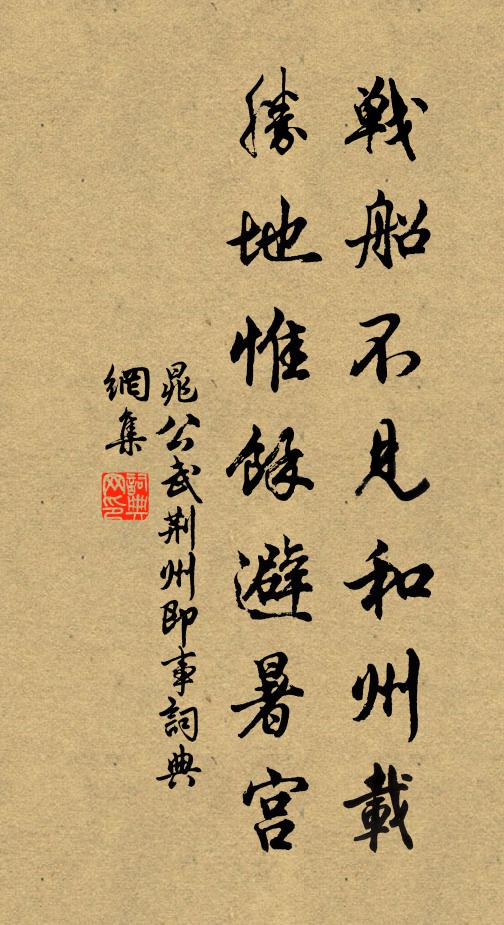 戦船不見和州載
勝地惟餘避暑宮
晁公武荆州即事詞典
網集
詞典
网印